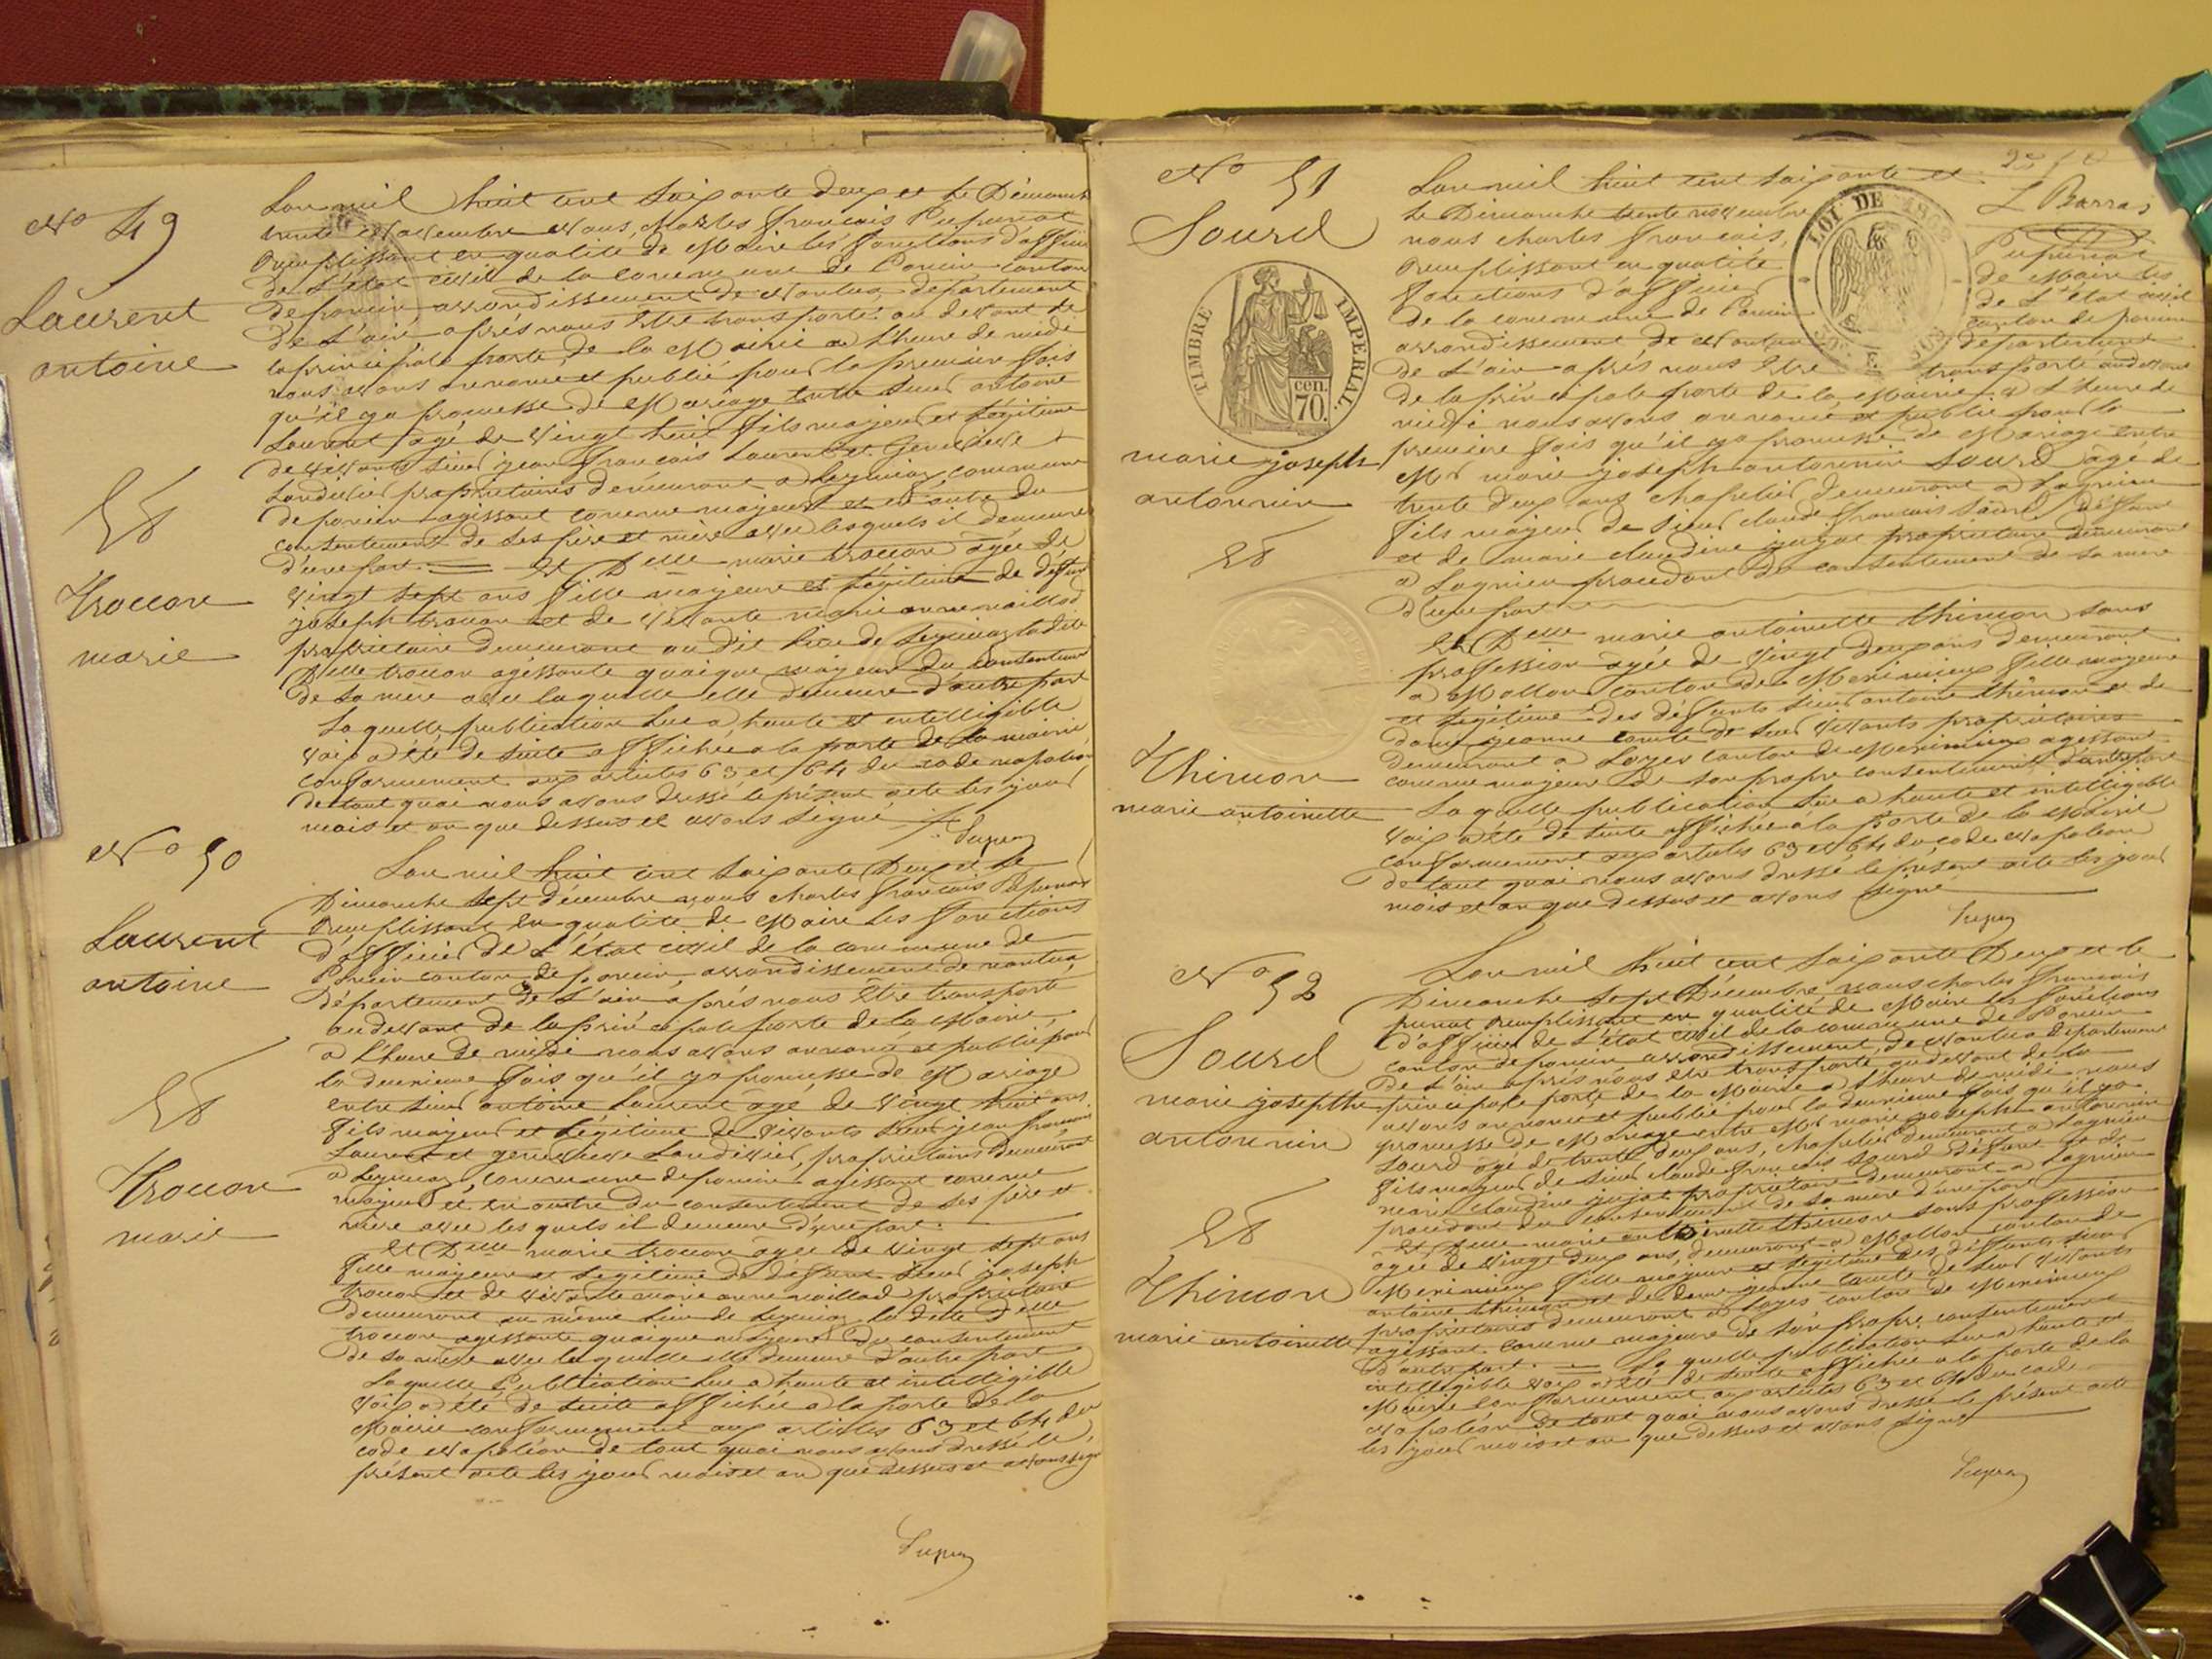 No 49
Laurent
antoine
et
trocon
marie
L'an mil huit cent soixante deux et le Dimanche
trente Novembre Nous, Charles francois Pupunat
remplissant en qualité de Maire les fonctions d'officier
de L'état civil de la commune de Poncin canton
de poncin arrondissement de Nantua, département
de L'ain, après nous être transporté au devant de
la principale porte de la Mairie a l'heure de midi
nous avons annoncé et publié pour la première fois
qu'il y a promesse de Mariage entre sieur antoine
Laurent agé de vingt huit fils majeur et légitime
de vivants sieur jean francois Laurent et Genevieve
propriétaires demeurant a Leymiaz commune
de poncin agissant comme majeur et en outre du
consentement de ses père et mère avec lesquels il demeure
d'une part. Et Delle marie trocon agée de
vingt sept ans fille majeure et légitime de défunt
joseph trocon et de vivante marie anne maillod
propriétaire demeurant au dit lieu de Leymiaz la dite
Delle trocon agissante quoique majeure du consentement
de sa mère avec laquelle elle demeure d'autre part
Laquelle publication lue a haute et intelligible
voix a été de suite affichée a la porte de la mairie
conformement aux articles 63 et 64 du code napoléon
de tout quoi nous avons dressé le présent acte les jour
mois et an que dessus et avons signé
No 50
Laurent
antoine
et
trocon
marie
L'an mil huit cent soixante Deux et le
Dimanche sept décembre nous charles francois Pupunat
remplissant en qualité de Maire les fonctions
d'officier de L'état civil de la commune de
Poncin canton de poncin, arrondissement de nantua,
département de L'ain après nous être transporté
au devant de la principale porte de la Mairie,
a l'heure de midi nous avons annoncé et publié pour
la deuxieme fois qu'il y a promesse de Mariage
entre sieur antoine Laurent agé de vingt huit ans
fils majeur et légitime de vivants sieur jean francois
Laurent et genevieve propriétaires demeurant
a Leymiaz, commune de poncin agissant comme
majeur et en outre du consentement de ses père et
mère avec les quels il demeure d'une part.
Et Delle marie trocon agée de vingt sept ans
fille majeure et légitime de défunt sieur joseph
trocon et de vivante marie anne maillod propriétaire
demeurant au même lieu de Leymiaz la dite Delle
trocon agissante quoique majeure du consentement
de sa mère avec laquelle elle demeure d'autre part
Laquelle Publication lue a haute et intelligible
voix a été de suite affichée a la porte de la
Mairie conformement aux articles 63 et 64 du
code napoléon de tout quoi nous avons dressé le
présent acte les jour mois et an que dessus et avons signé
No 51
Sourd
TIMBRE IMPERIAL
cen.
70.
marie joseph
antonnin
et
Thimon
marie antoinette
LOI DE 1862
L Barras
L'an mil huit cent soixante et
le Dimanche trente novembre
nous charles francois, Pupunat
remplissant en qualité de Maire les
fonctions d'officier de L'état civil
de la commune de Poncin canton de poncin
arrondissement de Nantua département
de L'ain après nous être transporté au devant
de la principale porte de la Mairie a L'heure de
midi nous avons annoncé et publié pour la
première fois qu'il y a promesse de Mariage entre
Mr marie joseph antonnin Sourd agé de
trente deux ans chapelier demeurant a Lagnieu
fils majeur de sieur claude francois Sourd défunt
et de marie claudine propriétaire demeurant
a Lagnieu procedant du consentement de sa mère
d'une part
Et Delle marie antoinette thimon sans
profession agée de vingt deux ans demeurant
a Mollon canton de Meximieux fille majeure
et légitime des défunts sieur antoine thimon et de
dame jeanne comte de leur vivants propriétaires
demeurant a Loyes canton de Meximieux agissant
comme majeure de son propre consentement d'autre part
Laquelle publication lue a haute et intelligible
voix a été de suite affichée a la porte de la Mairie
conformement aux articles 63 et 64 du code Napoléon
de tout quoi nous avons dressé le présent acte les jour
mois et an que dessus et avons signé
No 52
Sourd
marie josepthe
antonnin
et
Thimon
marie antoinette
L'an mil huit cent soixante Deux et le
Dimanche sept Décembre, nous charles francois
punat remplissant en qualité de Maire les fonctions
d'officier de L'état civil de la commune de Poncin
canton de poncin arrondissement, de Nantua département
de L'ain après nous être transporté au devant de la
principale porte de la Mairie a l'heure de midi nous
avons annoncé et publié pour la deuxieme fois qu'il y a
promesse de Mariage entre Mr marie joseph antonnin
Sourd agé de trente deux ans, chapelier demeurant a Lagnieu
fils majeur de sieur claude francois Sourd défunt et de
marie claudine propriétaire demeurant a Lagnieu
procedant du consentement de sa mère d'une part
Et Delle marie antoinette thimon sans profession
agée de vingt deux ans, demeurant a Mollon canton de
Meximieux fille majeure et légitime des défunts sieur
antoine thimon et de dame jeanne comte de leur vivants
propriétaires demeurant a Loyes canton de Meximieux
agissant comme majeure de son propre consentement
d'autre part. Laquelle publication lue a haute et
intelligible voix a été de suite affichée a la porte de la
Mairie conformement aux articles 63 et 64 du code
napoléon de tout quoi nous avons dressé le présent acte
les jour mois et an que dessus et avons signé